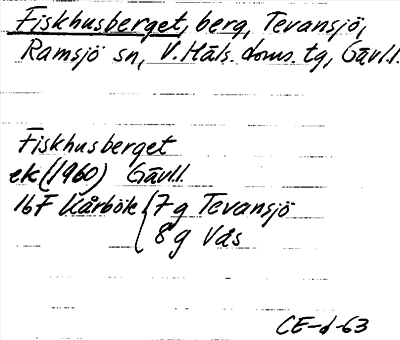 Fiskhusberget, berg, Tevansjö,
Ramsjö sn, V. Häls. doms. tg, Gävl.l.
Fiskhusberget
ek (1960) Gävl.l.
16F Kårbök { 7g Tevansjö
8g Vås
CE-d-63